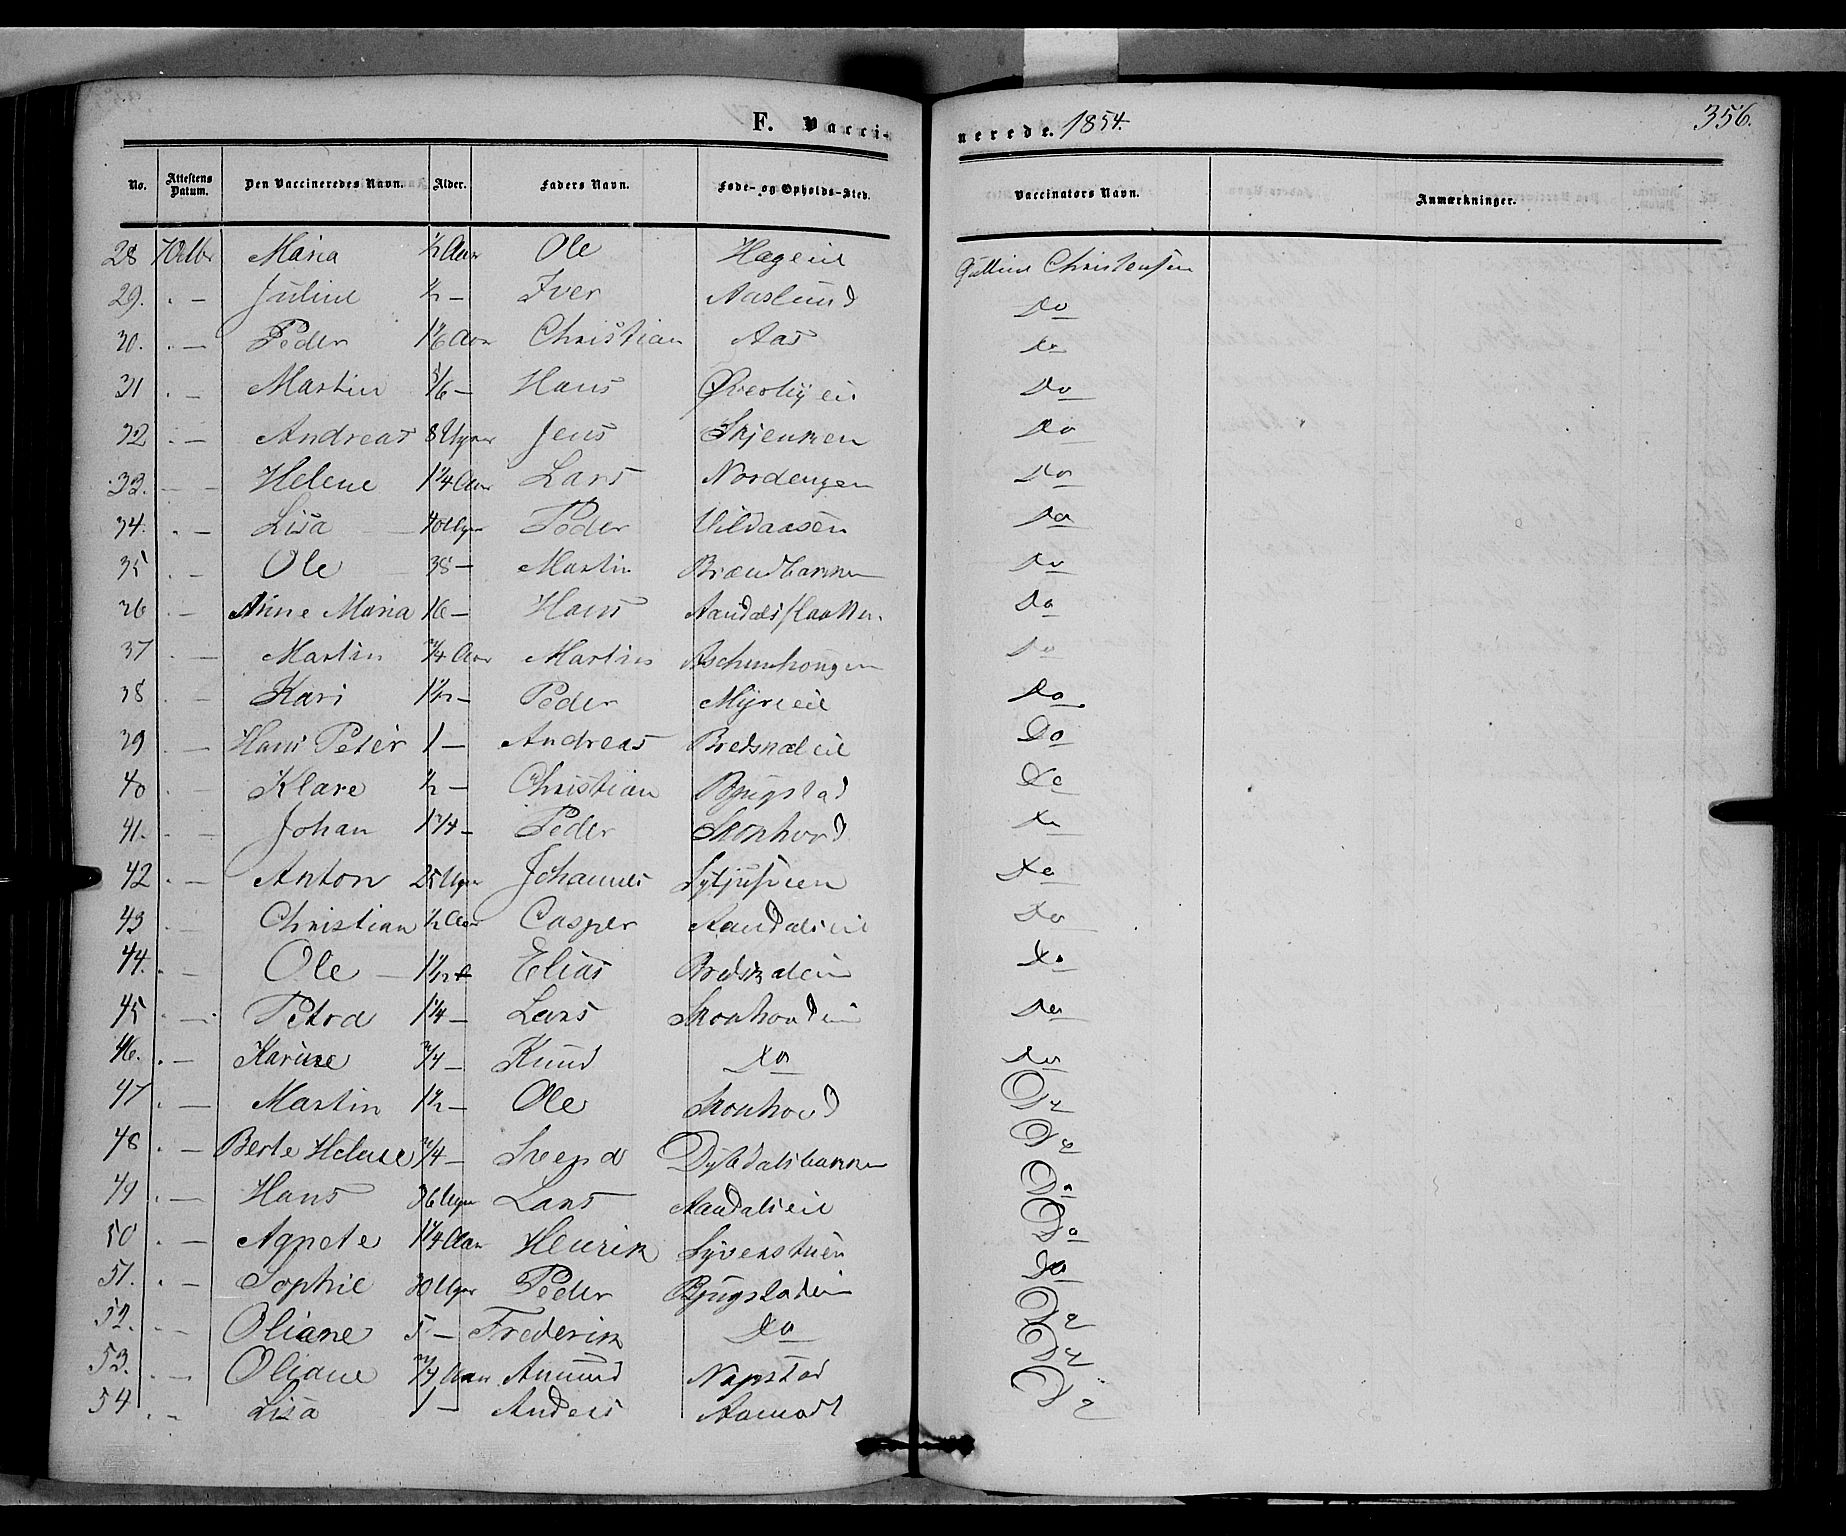 F. Vaccinerede. 1854. 356.
No. Attestens Datum. Den Vaccineredes Navn. Alder. Faders Navn. Føde- og Opholds-Sted. Vaccinators Navn. Anmærkninger.
28 7 Octbr Maria ½ Aar Ole Hageeie Christensen
29. . — Juline ½ — Iver Aaslund Do
30. . — Peder 1 1/6 Aar Christian Aas Do
31 . — Martin 5/6 — Hans Øverbyeie Do
32 . — Andreas 8 Uger Jens Skjenken Do
33. — — Helene 1¼ Aar Lars Nordengen Do
34. . — Lisa — 40 Uger Peder Vildaasen Do
35 . — Ole 38 — Martin Brændbakken Do
36 . — Anne Maria 16 — Hans Do
37 . — Martin ¾ Aar Martin Do
38 . — Kari 1½ — Peder Myreeie Do
39 . — Hans Peter 1 — Andreas Do
40 . — Klare ½ — Christian Bjugstad Do
41. . — Johan 1¾ — Peder Skonhovd Do
42 . — Anton 25 Uger Johannes Do
43 . — Christian ½ Aar Casper Aandalseie Do
44. . — Ole — 1½ Elias Do
45 . — Petra 1¼ — Lars Skonhovdeie Do
46. . — Karine ¾ — Knud Do Do
47 . — Martin 1½ — Ole Skonhovd Do
48 . — Berte Helene ¾ — Svend Dybdalsbakken Do
49 . — Hans 36 Uger Lars Aandalseie Do
50 . — Agnete 1¼ Aar Henrik Syverstuen Do
51. . — Sophie 30 Uger Peder Bjugstadeie Do
52. . — Oliane 5 — Frederik Do Do
53. . — Oliane ¾ Aar Amund Nøpstad Do
54 . — Lisa 1 — Anders Aamodt Do